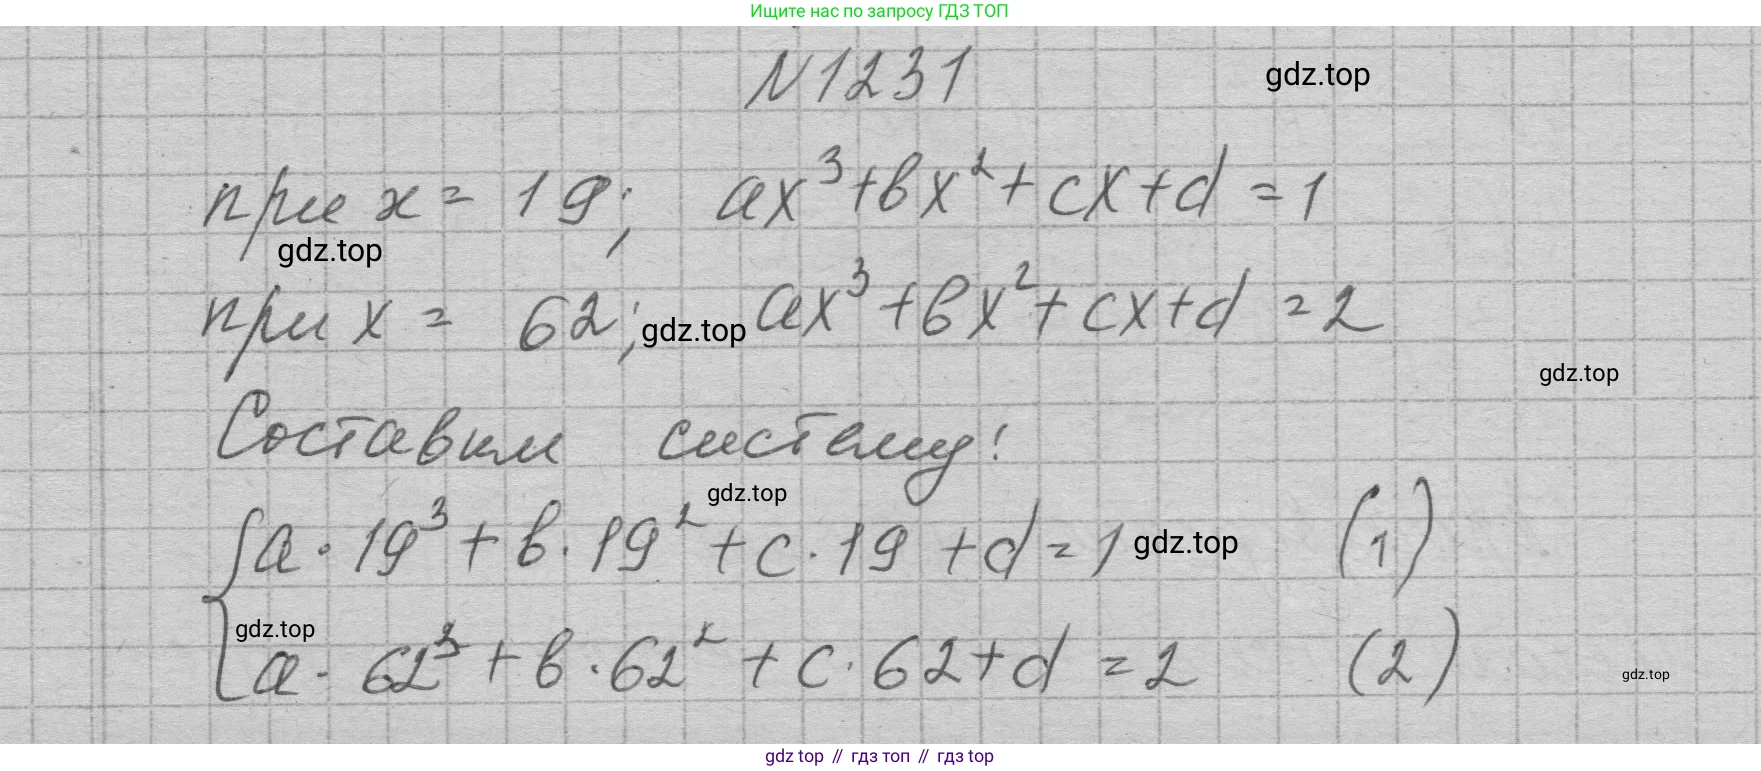 Ищите нас по запросу ГДЗ ТОП
N1231
gdz.top
при x = 19; ax³+bx²+cx+d=1
gdz.top
при x = 62; ax³+bx²+cx+d=2
gdz.top
gdz.top
Составим систему!
gdz.top
{a·19³+b·19²+c·19+d=1 (1)
gdz.top
gdz.top
a·62³+b·62²+c·62+d=2 (2)
gdz.top
gdz top // гдз топ // gdz top